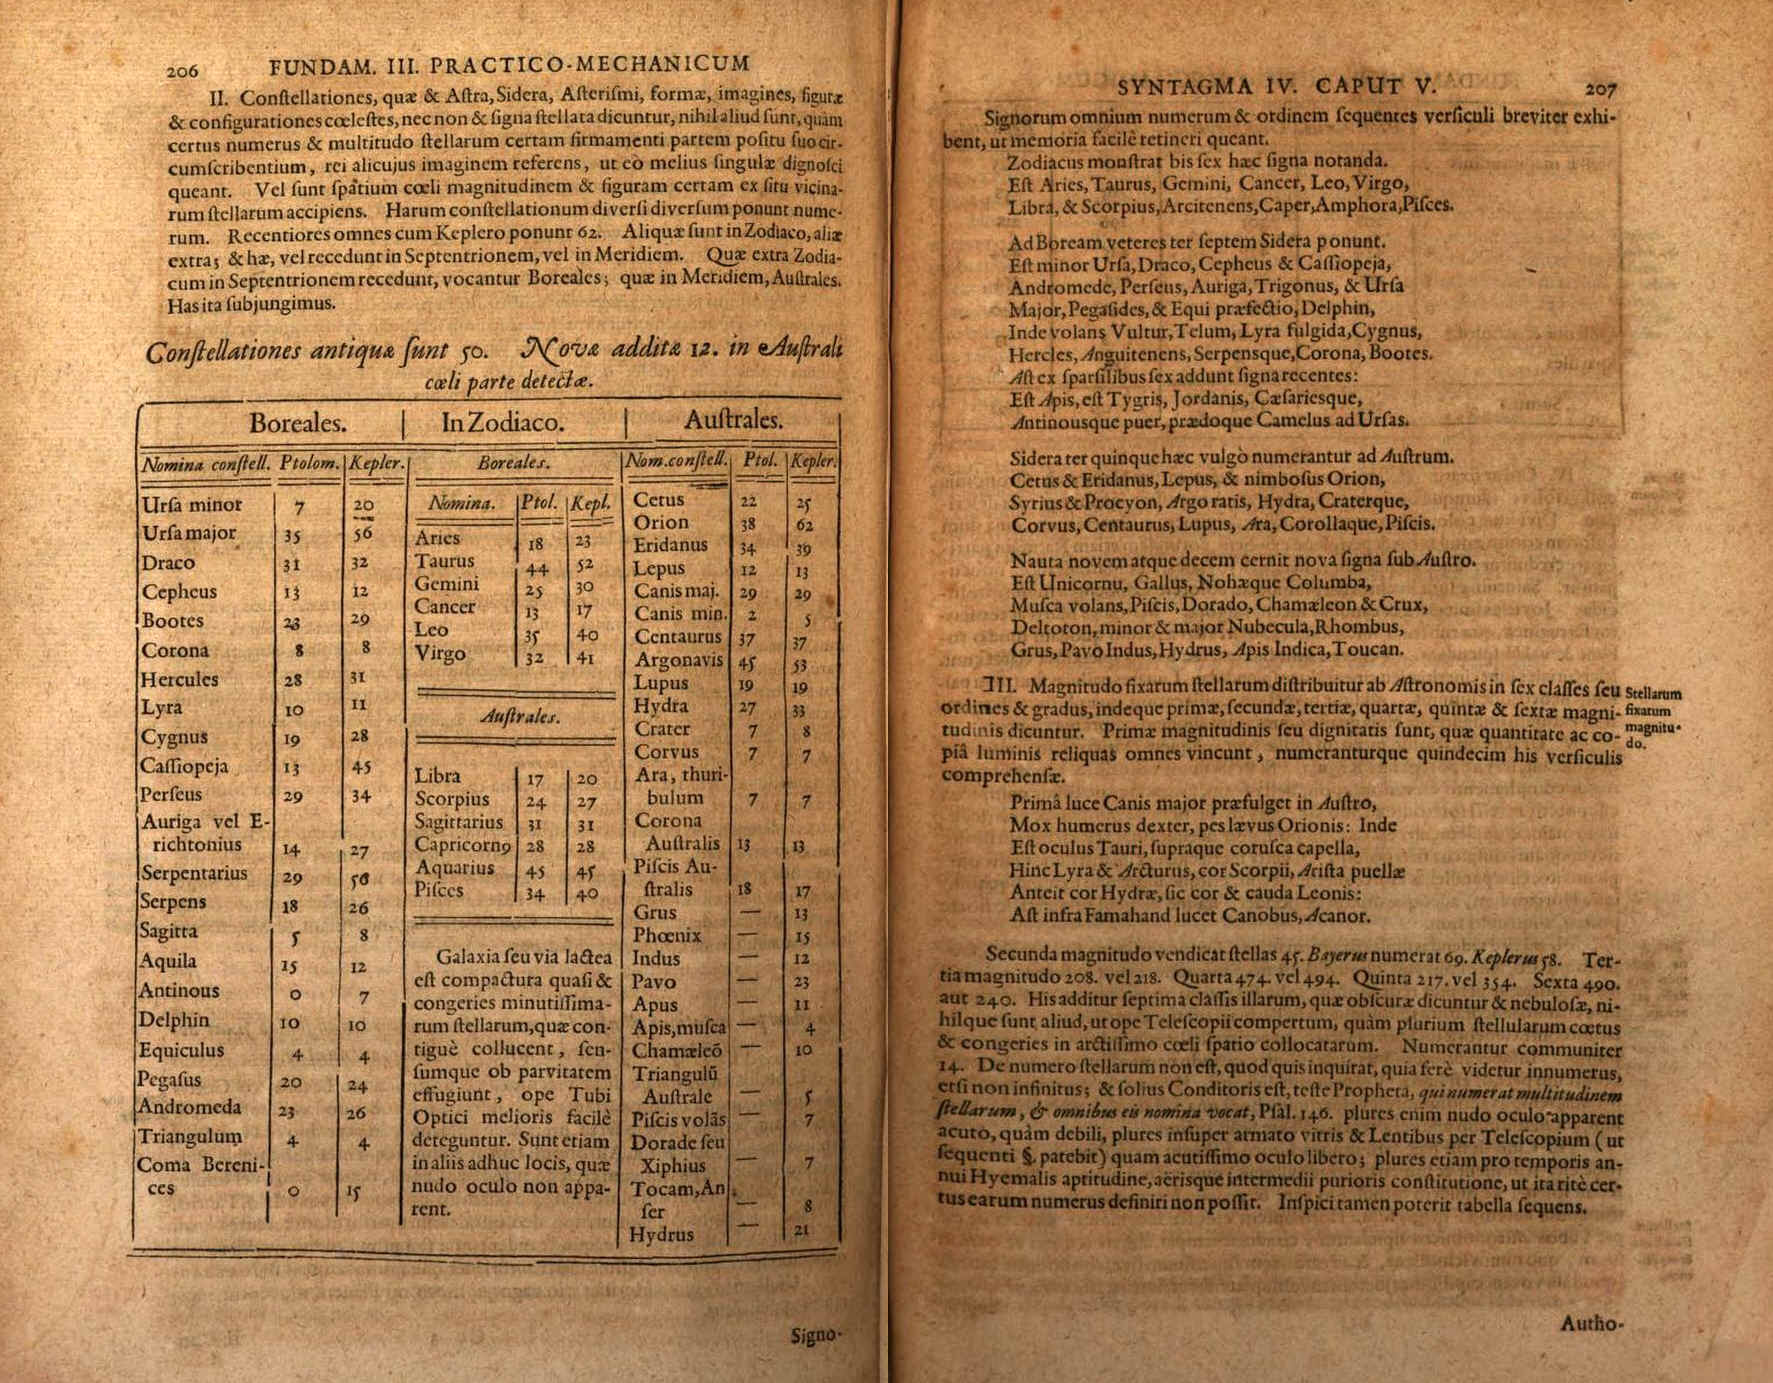 206 FUNDAM. III. PRACTICO-MECHANICUM
II. Conſtellationes, quæ & Aſtra, Sidera, Aſteriſmi, formæ, imagines, figuræ
& configurationes cœleſtes, nec non & ſigna ſtellata dicuntur, nihil aliud ſunt, quàm
certus numerus & multitudo ſtellarum certam firmamenti partem poſitu ſuo cir-
cumſcribentium, rei alicujus imaginem referens, ut eò melius ſingulæ dignoſci
queant. Vel ſunt ſpatium cœli magnitudinem & figuram certam ex ſitu vicina-
rum ſtellarum accipiens. Harum conſtellationum diverſi diverſum ponunt nume-
rum. Recentiores omnes cum Keplero ponunt 62. Aliquæ ſunt in Zodiaco, aliæ
extra; & hæ, vel recedunt in Septentrionem, vel in Meridiem. Quæ extra Zodia-
cum in Septentrionem recedunt, vocantur Boreales; quæ in Meridiem, Auſtrales.
Has ita ſubjungimus.
Conſtellationes antiquæ ſunt 50. Novæ additæ 12. in Auſtrali
cœli parte detectæ.
Boreales.
Nomina conſtell. Ptolom. Kepler.
Urſa minor 7 20
Urſa major 35 56
Draco 31 32
Cepheus 13 12
Bootes 23 29
Corona 8 8
Hercules 28 31
Lyra 10 11
Cygnus 19 28
Caſſiopeja 13 45
Perſeus 29 34
Auriga vel E-
richtonius 14 27
Serpentarius 29 56
Serpens 18 26
Sagitta 5 8
Aquila 15 12
Antinous 0 7
Delphin 10 10
Equiculus 4 4
Pegaſus 20 24
Andromeda 23 26
Triangulum 4 4
Coma Bereni-
ces 0 15
In Zodiaco.
Boreales.
Nomina. Ptol. Kepl.
Aries 18 23
Taurus 44 52
Gemini 25 30
Cancer 13 17
Leo 35 40
Virgo 32 41
Auſtrales.
Libra 17 20
Scorpius 24 27
Sagittarius 31 31
Capricornꝰ 28 28
Aquarius 45 45
Piſces 34 40
Galaxia ſeu via lactea
eſt compactura quaſi &
congeries minutiſſima-
rum ſtellarum, quæ con-
tiguè collucent, ſen-
ſumque ob parvitatem
effugiunt, ope Tubi
Optici melioris facilè
deteguntur. Sunt etiam
in aliis adhuc locis, quæ
nudo oculo non appa-
rent.
Auſtrales.
Nom. conſtell. Ptol. Kepler.
Cetus 22 25
Orion 38 62
Eridanus 34 39
Lepus 12 13
Canis maj. 29 29
Canis min. 2 5
Centaurus 37 37
Argonavis 45 53
Lupus 19 19
Hydra 27 33
Crater 7 8
Corvus 7 7
Ara, thuri-
bulum 7 7
Corona
Auſtralis 13 13
Piſcis Au-
ſtralis 18 17
Grus — 13
Phœnix — 15
Indus — 12
Pavo — 23
Apus — 11
Apis, muſca — 4
Chamæleō — 10
Triangulū
Auſtrale — 5
Piſcis volās — 7
Dorade ſeu
Xiphius — 7
Tocam, An
ſer — 8
Hydrus — 21
Signo-
SYNTAGMA IV. CAPUT V. 207
Signorum omnium numerum & ordinem ſequentes verſiculi breviter exhi-
bent, ut memoria facilè retineri queant.
Zodiacus monſtrat bis ſex hæc ſigna notanda.
Eſt Aries, Taurus, Gemini, Cancer, Leo, Virgo,
Libra, & Scorpius, Arcitenens, Caper, Amphora, Piſces.
Ad Boream veteres ter ſeptem Sidera ponunt.
Eſt minor Urſa, Draco, Cepheus & Caſſiopeja,
Andromede, Perſeus, Auriga, Trigonus, & Urſa
Major, Pegaſides, & Equi præfectio, Delphin,
Inde volans Vultur, Telum, Lyra fulgida, Cygnus,
Hercles, Anguitenens, Serpensque, Corona, Bootes.
Aſt ex ſparſilibus ſex addunt ſigna recentes:
Eſt Apis, eſt Tygris, Jordanis, Cæſariesque,
Antinousque puer, prædoque Camelus ad Urſas.
Sidera ter quinque hæc vulgò numerantur ad Auſtrum.
Cetus & Eridanus, Lepus, & nimboſus Orion,
Syrius & Procyon, Argo ratis, Hydra, Craterque,
Corvus, Centaurus, Lupus, Ara, Corollaque, Piſcis.
Nauta novem atque decem cernit nova ſigna ſub Auſtro.
Eſt Unicornu, Gallus, Nohæque Columba,
Muſca volans, Piſcis, Dorado, Chamæleon & Crux,
Deltoton, minor & major Nubecula, Rhombus,
Grus, Pavo Indus, Hydrus, Apis Indica, Toucan.
III. Magnitudo fixarum ſtellarum diſtribuitur ab Aſtronomis in ſex claſſes ſeu
ordines & gradus, indeque primæ, ſecundæ, tertiæ, quartæ, quintæ & ſextæ magni-
tudinis dicuntur. Primæ magnitudinis ſeu dignitatis ſunt, quæ quantitate ac co-
piâ luminis reliquas omnes vincunt, numeranturque quindecim his verſiculis
comprehenſæ.
Stellarum
fixarum
magnitu-
do.
Primâ luce Canis major præfulget in Auſtro,
Mox humerus dexter, pes lævus Orionis: Inde
Eſt oculus Tauri, ſupraque coruſca capella,
Hinc Lyra & Arcturus, cor Scorpii, Ariſta puellæ
Anteit cor Hydræ, ſic cor & cauda Leonis:
Aſt infra Famahand lucet Canobus, Acanor.
Secunda magnitudo vendicat ſtellas 45. Bayerus numerat 69. Keplerus 58. Ter-
tia magnitudo 208. vel 218. Quarta 474. vel 494. Quinta 217. vel 354. Sexta 490.
aut 240. His additur ſeptima claſſis illarum, quæ obſcuræ dicuntur & nebuloſæ, ni-
hilque ſunt aliud, ut ope Teleſcopii compertum, quàm plurium ſtellularum cœtus
& congeries in arctiſſimo cœli ſpatio collocatarum. Numerantur communiter
14. De numero ſtellarum non eſt, quod quis inquirat, quia ferè videtur innumerus,
etſi non infinitus; & ſolius Conditoris eſt, teſte Propheta, qui numerat multitudinem
ſtellarum, & omnibus eis nomina vocat, Pſal. 146. plures enim nudo oculo apparent
acuto, quàm debili, plures inſuper armato vitris & Lentibus per Teleſcopium (ut
ſequenti §. patebit) quam acutiſſimo oculo libero; plures etiam pro temporis an-
nui Hyemalis aptitudine, aërisque intermedii purioris conſtitutione, ut ita ritè cer-
tus earum numerus definiri non poſſit. Inſpici tamen poterit tabella ſequens.
Autho-